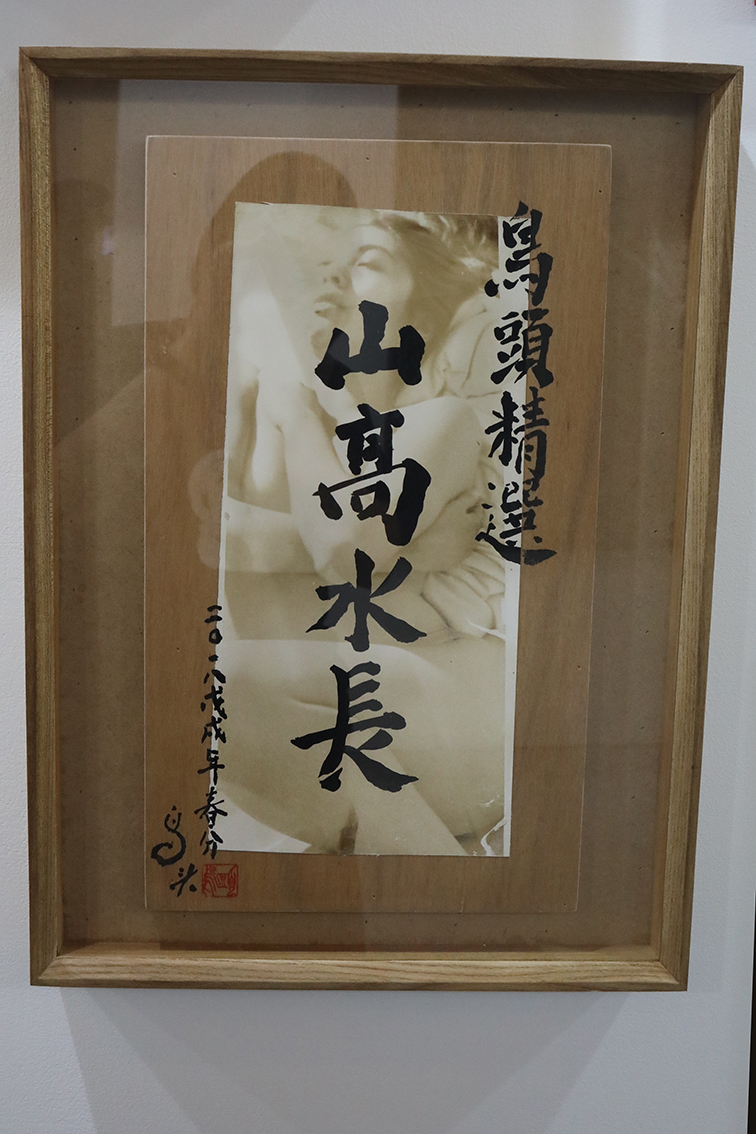 鳥頭精選
山高水長
二〇一八戊戌年春分
鸟头